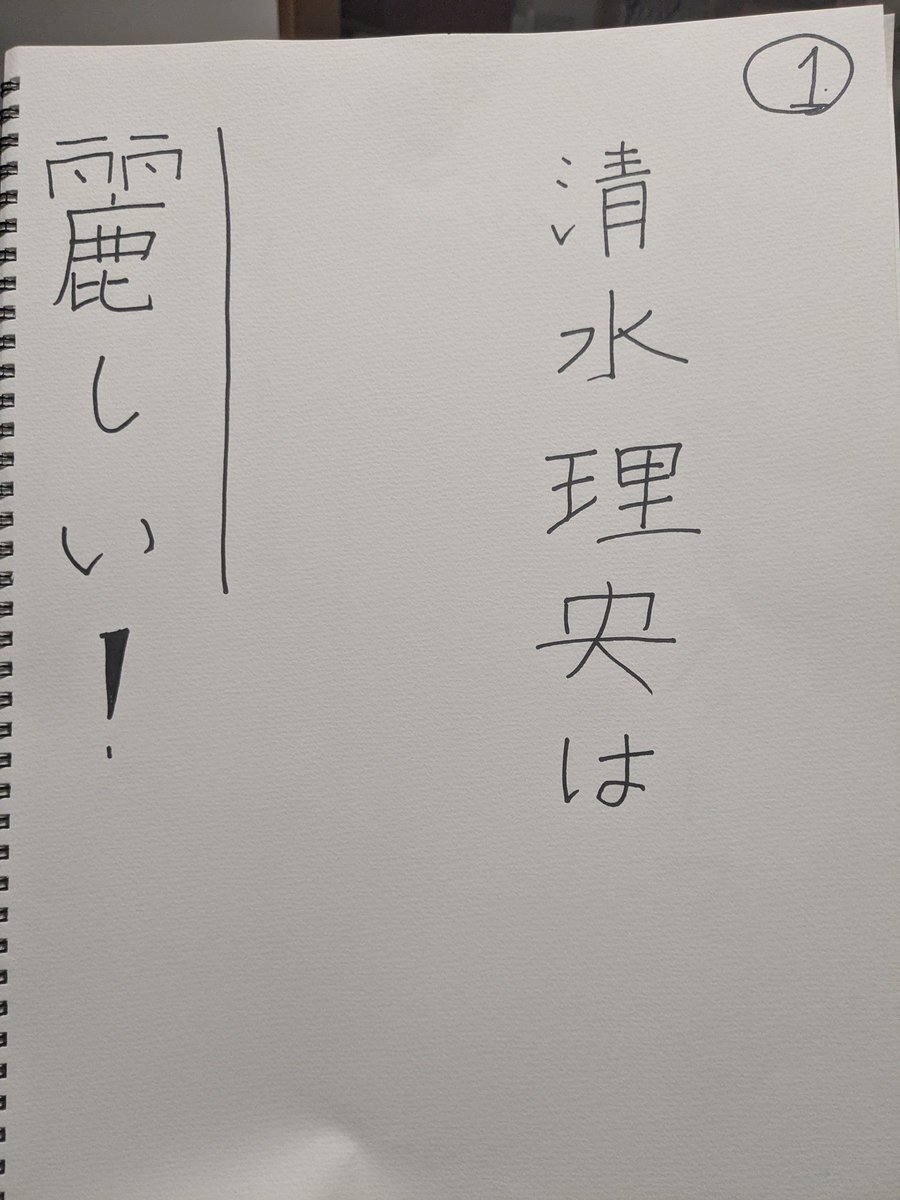 ①
清水理央は
麗しい！